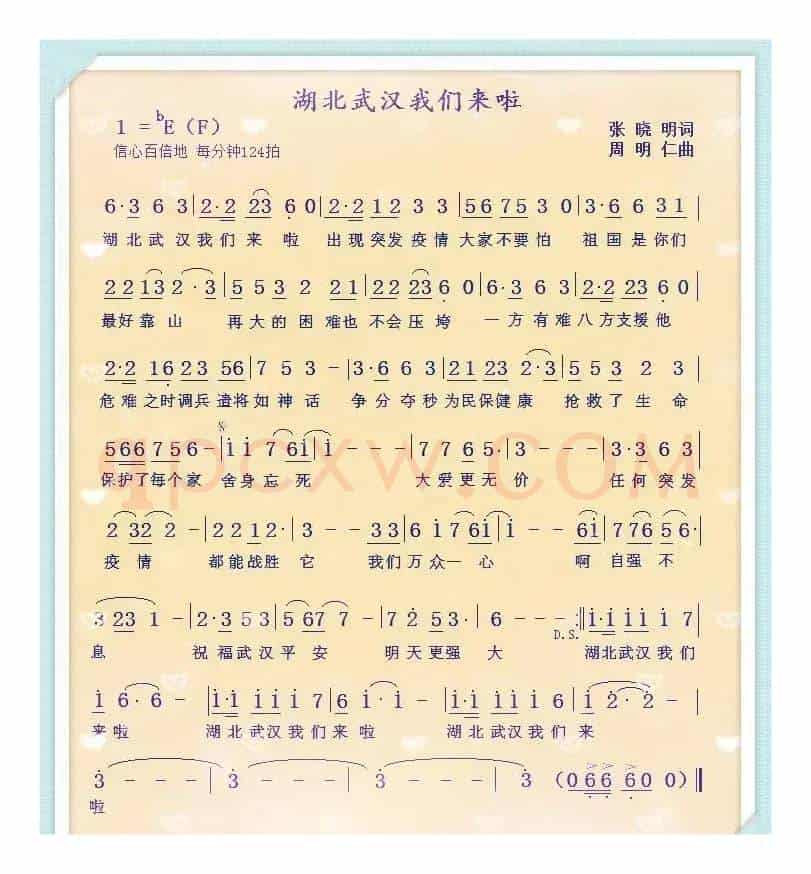 湖北武汉我们来啦
1 = ᵇE（F）
张 晓 明词
信心百倍地 每分钟124拍
周 明 仁曲
6·3 6 3|2·2 23 6 0|2·2 12 3 3|56 75 3 0|3·6 6 31|
湖北武汉我们来 啦 出现突发疫情 大家不要怕 祖国是你们
22 13 2·3|5 5 3 2 21|22 23 6 0|6·3 6 3|2·2 23 6 0|
最好靠山 再大的困难也 不会压垮 一方有难八方支援他
2·2 16 23 56|7 5 3 -|3·6 6 3|21 23 2·3|5 5 3 2 3|
危难之时调兵遣将如神话 争分夺秒为民保健康 抢救了生命
566 756 -|i i 7 6i|i - - -|7 7 65·|3 - - -|3·3 63|
保护了每个家 舍身忘死 大爱更无价 任何突发
2 32 2 -|2 2 12·|3 - - 33|6 i 7 6i|i - - 6i|776 56·|
疫情 都能战胜它 我们万众一心 啊 自强不
3 23 1 -|2·3 5 3|5 67 7 -|7 2 53·|6 - - -:||i·i ii i 7|
D.S.
息 祝福武汉平安 明天更强大 湖北武汉我们
i 6·6 -|i·i ii i 7|6 i·i -|i·i ii i 6|i 2·2 -|
来啦 湖北武汉我们来啦 湖北武汉我们来
3 - - -|3 - - -|3 - - -|3 （066 60 0）||
啦
qpcxw.COM